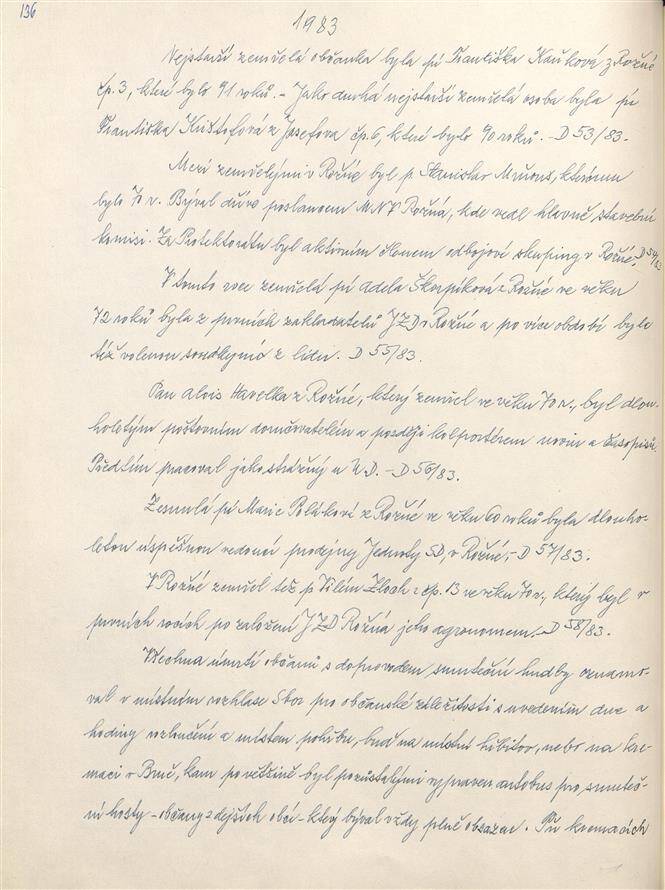 136
1983
Nejstarší zemřelá občanka byla pí Františka Kaňková z Rožné
čp. 3, které bylo 91 roků. - Jako druhá nejstarší zemřelá osoba byla pí
Františka Krištofová z Josefova čp. 6, které bylo 90 roků. - D 53/83.
Mezi zemřelými v Rožné byl p. Stanislav, kterému
bylo 70 r. Býval dříve poslancem MNV Rožná, kde vedl hlavně stavební
komisi. Za Protektorátu byl aktivním členem odbojové skupiny v Rožné. D 54/83
V tomto roce zemřelá pí Adela Škarpíková z Rožné ve věku
72 roků byla z prvních zakladatelů JZD v Rožné a po více období byla
též volenou soudkyní z lidu. D 55/83.
Pan Alois Havelka z Rožné, který zemřel ve věku 70 r., byl dlou-
holetým poštovním doručovatelem a později kolportérem novin a časopisů.
Předtím pracoval jako strážný u U.D. - D 56/83.
Zesnulá pí Marie Poláková z Rožné ve věku 60 roků byla dlouho-
letou úspěšnou vedoucí prodejny Jednoty SD, v Rožné. - D 57/83.
V Rožné zemřel též p. Vilém Zloch z čp. 13 ve věku 70 r., který byl v
prvních rocích po založení JZD Rožná jeho agronomem. - D 58/83.
Všechna úmrtí občanů s doprovodem smuteční hudby oznamo-
val v místním rozhlase Sbor pro občanské záležitosti s uvedením dne a
hodiny rozloučení a místem pohřbu, buď na místní hřbitov, nebo na kre-
maci v Brně, kam po většině byl pozůstalými vypraven autobus pro smuteč-
ní hosty - občany zdejších obcí - který býval vždy plně obsazen. Při kremacích